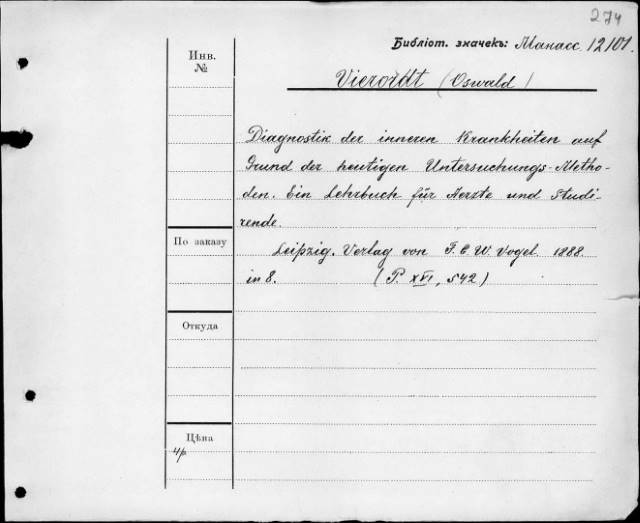 274
Библіот. значекъ: Манасс. 12/101.
Инв.
№
Vierordt (Oswald)
Diagnostik der inneren Krankheiten auf
Grund der heutigen Untersuchungs-Metho-
den. Ein Lehrbuch für Aerzte und Studi-
rende.
По заказу
Leipzig. Verlag von F. C. W. Vogel. 1888.
in 8. (P. XVI, 542)
Откуда
Цѣна
4р